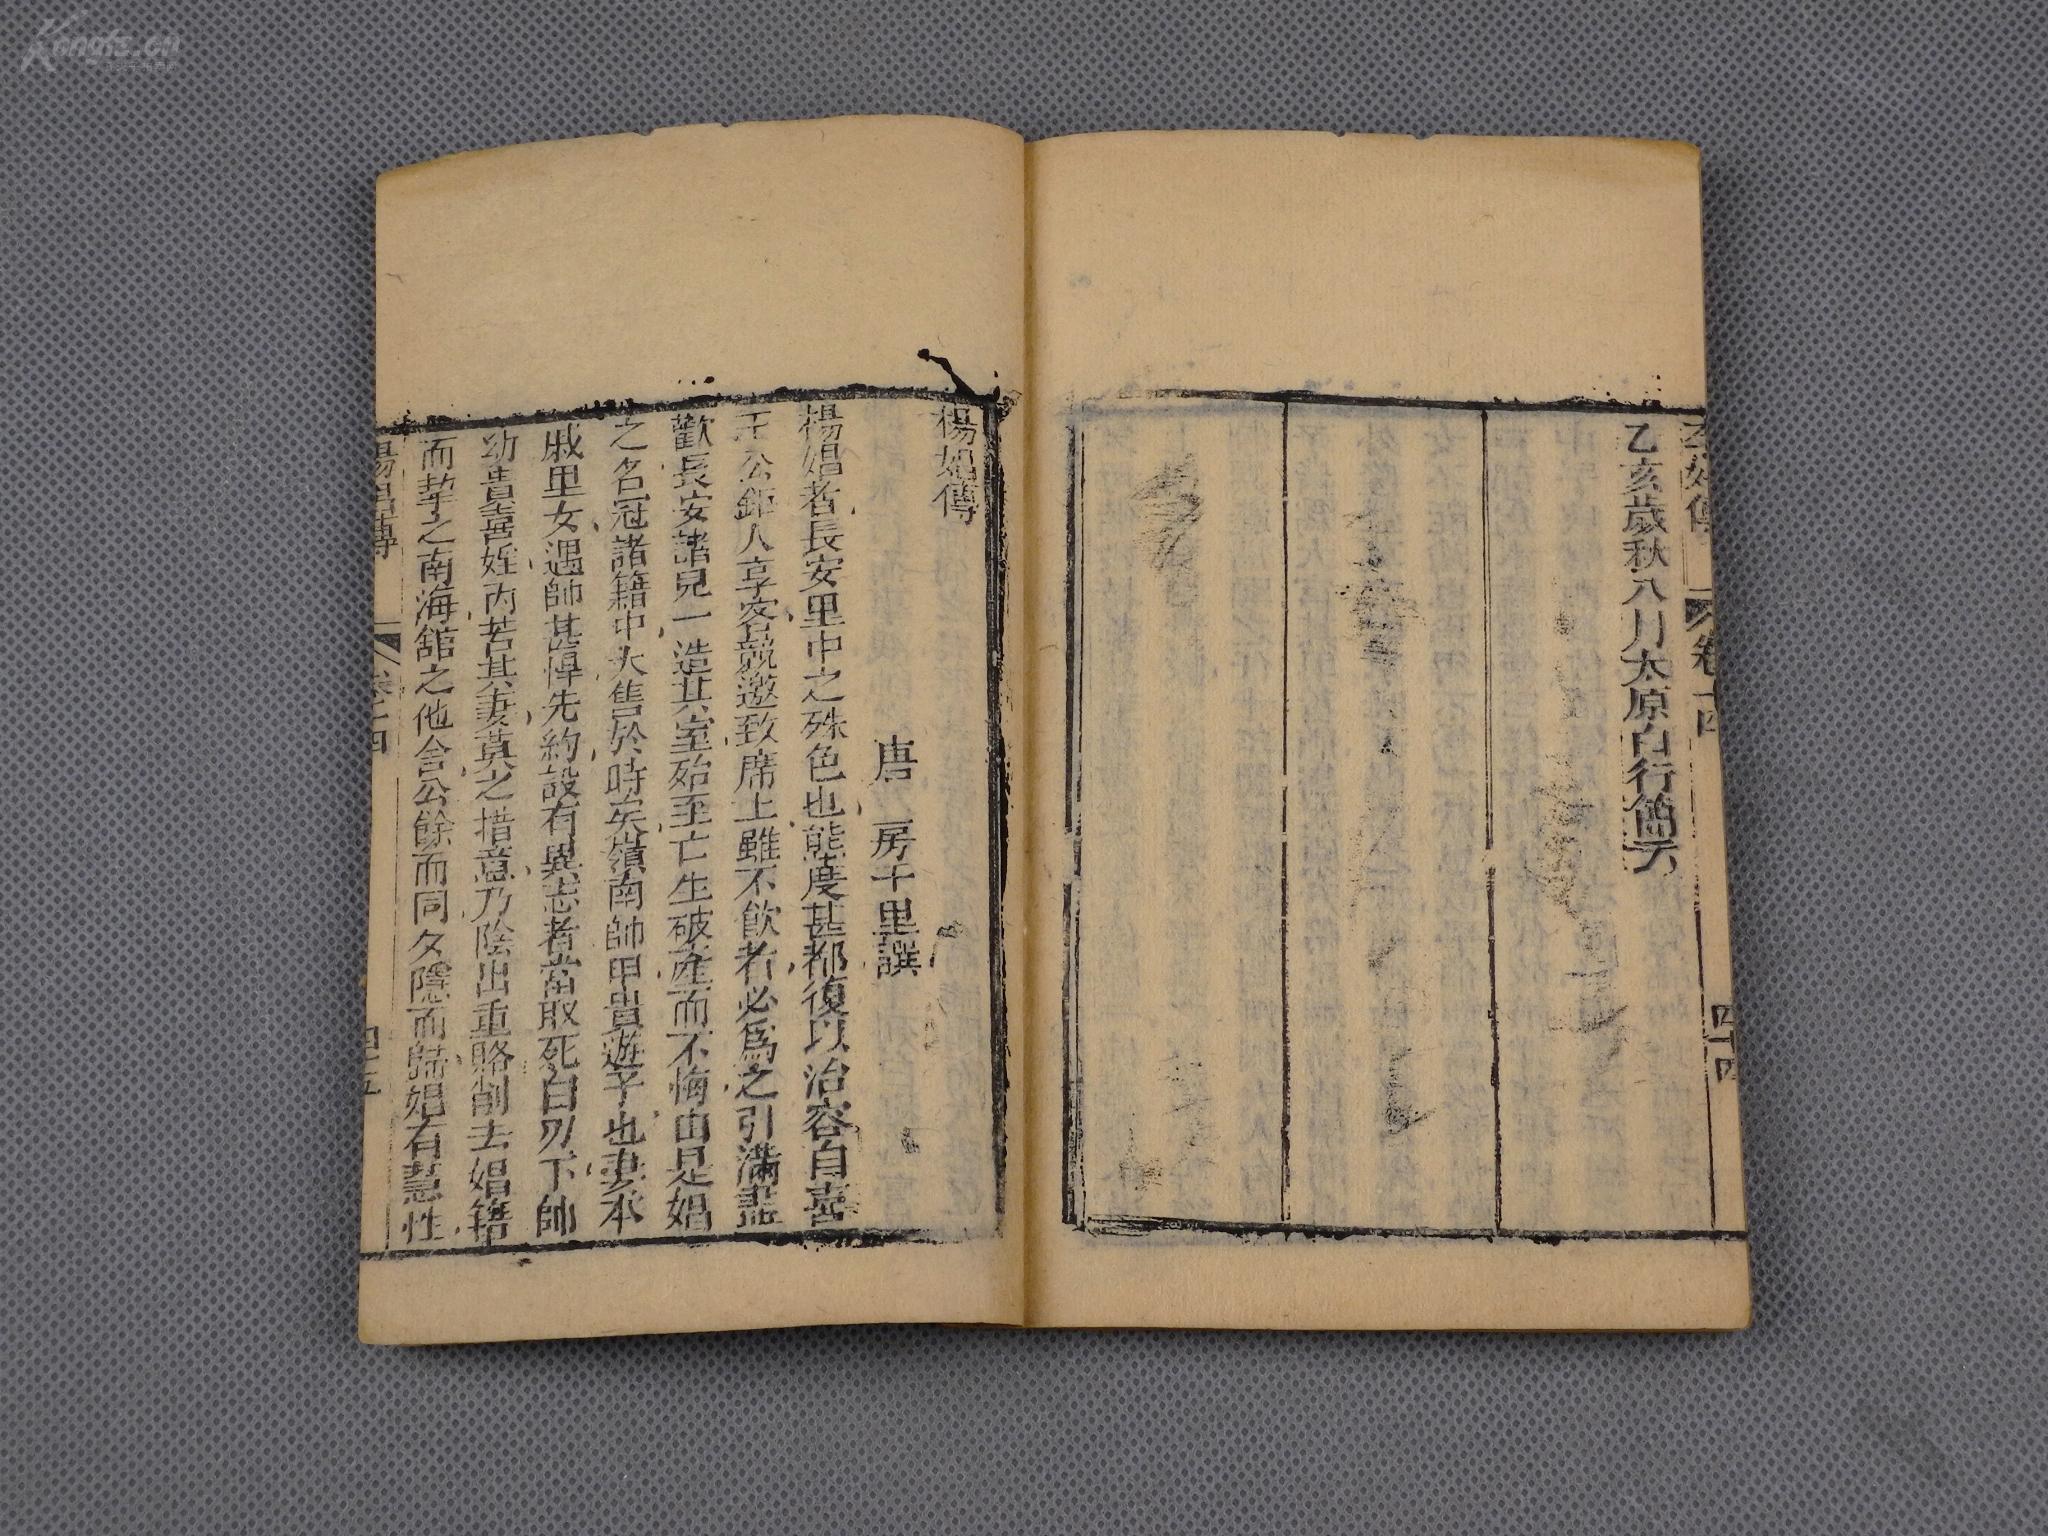 乙亥歲秋八月太原白行簡云
楊娼傳
唐 房千里撰
楊娼者長安里中之殊色也態度甚都復以冶容自喜
王公鉅人享客競邀致席上雖不飲者必爲之引滿盡
歡長安諸兒一造其室殆至亡生破產而不悔由是娼
之名冠諸籍中大售於時矣嶺南帥甲貴遊子也妻本
戚里女遇帥甚悍先約設有異志者當取死白刃下帥
幼貴喜婬內苦其妻莫之措意乃陰出重賂削去娼籍
而挈之南海館之他舍公餘而同夕隱而歸娼有慧性
楊娼傳
卷十四
四十五
卷十四
四十四
Kongfz.cn